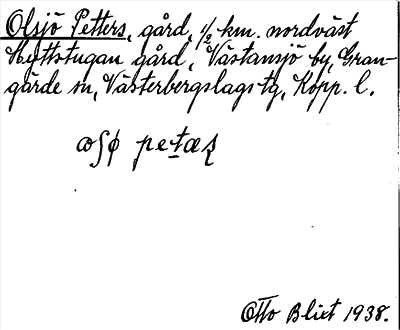 Olsjö Petters, gård, 1/2 km. nordväst
Hyttstugan gård, Västansjö by, Gran-
gärde sn, Västerbergslags tg, Kopp. l.
Otto Blixt 1938.